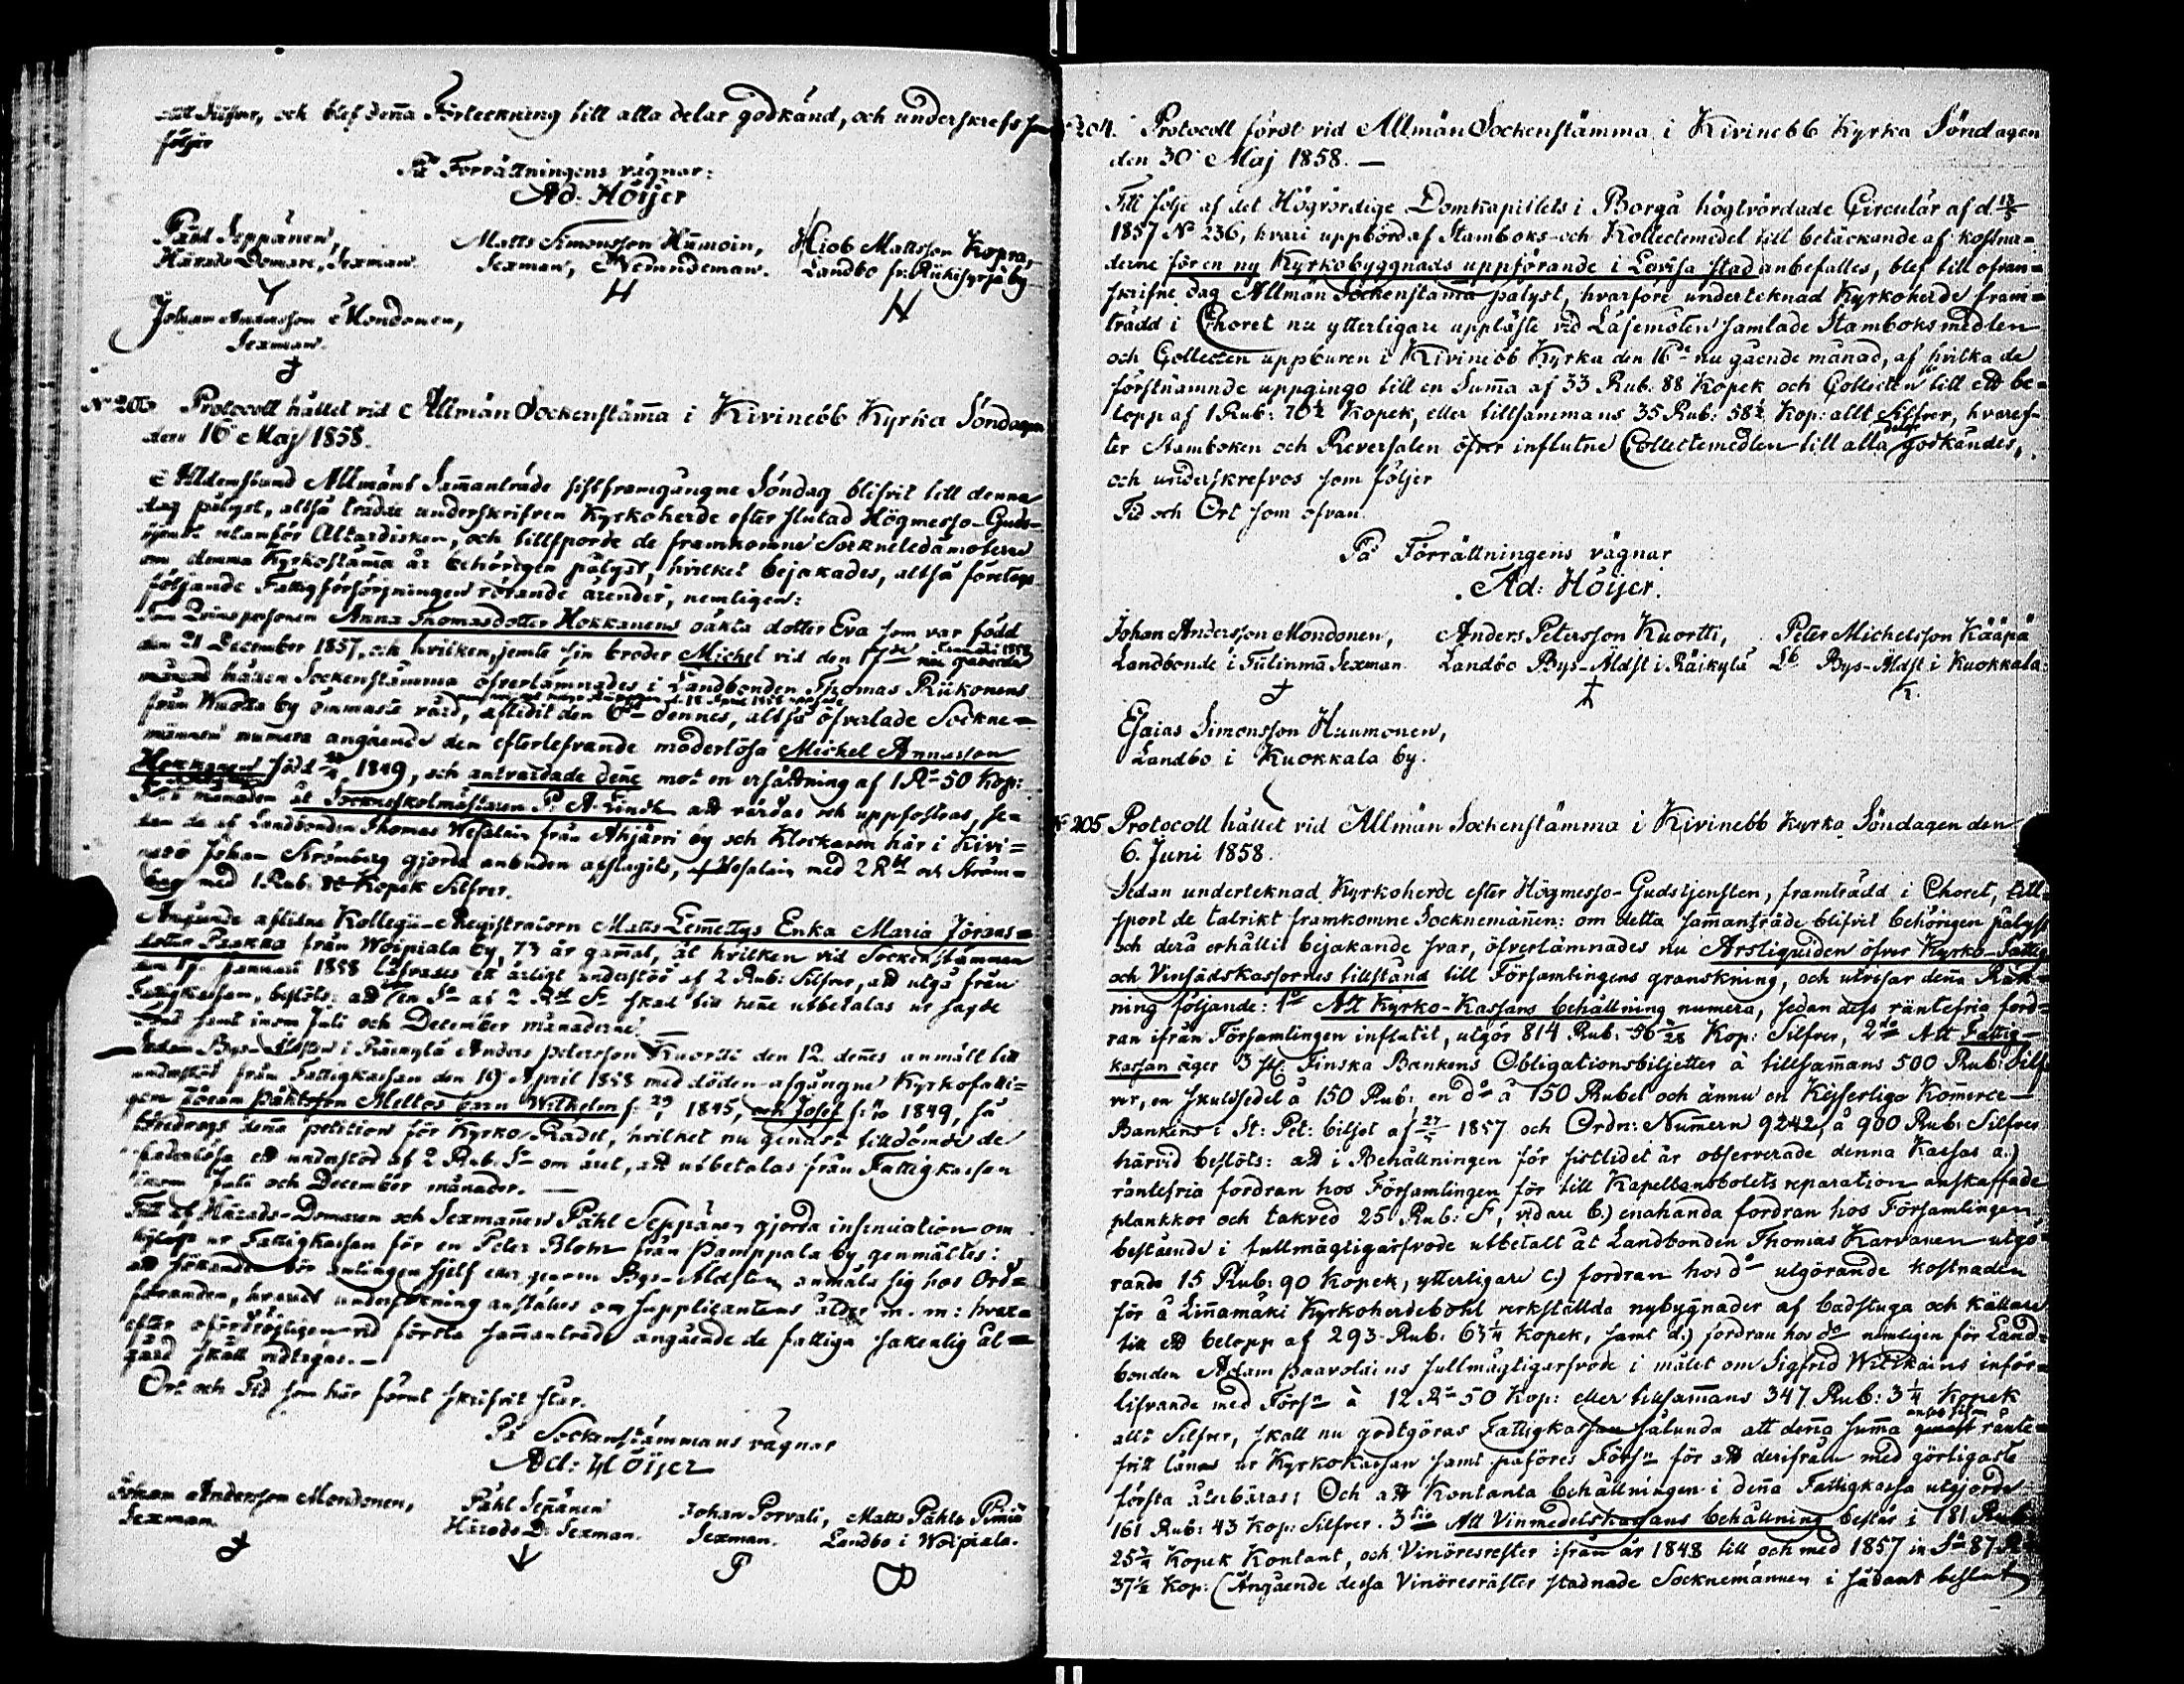 och blef denna Förteckning till alla delar godkänd, och underskrefs som
följer
På Förrättningens vägnar:
Ad: Höijer
Påhl Seppänen, Matts Simonsson Humoin, Hiob Mattsson Kopra,
Härads Domare, Sexman. Sexman, Nemndeman. Landbo fr. by
Johan Andersson Mondonen,
Sexman.
N 203 Protocoll hållet vid Allmän Sockenstäm̄a i Kivinebb Kyrka Söndagen
den 16 Maj 1858.
Allmänt Sam̄anträde sistframgångne Söndag blifvit till denna
dag pålyst, altså trädde underskrifven Kyrkoherde efter slutad Högmesso-Guds-
tjenst utanför Altardisken, och tillsporde de framkomne Sockneledamöterne
om denna Kyrkostäm̄a är behörigen pålyst, hvilket bejakades, altså företogs
följande Fattigförsörjningen rörande ärender, nemligen:
Anna Thomasdotter Hokkanens oäkta dotter Eva som var född
den 21 December 1857, och hvilken, jemte sin broder Michel vid den 17de Januari 1858
hållen Sockenstämma öfverlämnades i Landbonden Thomas Riikonens
från Wuotta by ömmaste vård, aflidit den 6te dennes, altså öfverlade Sockne-
männen numera angående den efterlefvande moderlösa Michel Annasson
Hokkanen född 1849, och antvardade den̄e mot en ersättning af 1 R 50 Kop:
i månaden åt Sockneskolmästaren P. A. Lindh att vårdas och uppfostras, se-
dan de af Landbonden Thomas Wesalain från Ahjärvi by och Klockaren här i Kivi-
nebb Johan Strömberg gjorda anbuden afslagits, Wesalain med 2 Rbl och Ström-
berg med 1 Rub. 80 Kopek Silfver.
Angående aflidne Kollegii-Registratorn Matts Lem̄ettys Enka Maria Jörans-
dotter Paakka från Woipiala by, 73 år gam̄al, åt hvilken vid Sockenstämman
den 17 Januari 1858 lofvades ett årligt understöd af 2 Rub: Silfver, att utgå från
Fattigkassan, beslöts: att en Sa af 2 Rbl Sr skall till hen̄e utbetalas ur sagde
fond samt inom Juli och December månaderne.
Sedan Bys-Äldsten i Räikylä Anders Petersson Kuortti den 12 den̄es anmält till
understöd från Fattigkassan den 19 April 1858 med döden afgångne Kyrkofatti-
gen Adam Påhlsson Mellos barn Wilhelm f: 1845, och Josef f: 1849, så
föredrogs den̄a petition för Kyrko-Rådet, hvilket nu genast tilldömde de
faderlösa ett understöd af 2 Rub. Sr om året, att utbetalas från Fattigkassan
inom Juli och December månader.
Till af Härads-Domaren och Sexman̄en Påhl Seppänen gjorda insinuation om
hjelp ur Fattigkassan för en Peter Blom från Pamppala by genmältes:
att sökanden bör antingen sjelf eller genom Bys-Äldsten anmäla sig hos Ord-
föranden, hvarest undersökning anställes om supplicantens ålder m. m: hvar-
efter vid första sam̄anträde angående de fattiga sakenlig åt-
gärd skall vidtagas.
Ort och Tid som här förut skrifvit står.
På Sockenstämmans vägnar
Ad: Höijer
Johan Andersson Mondonen, Påhl Sepänen Johan Porvali, Matts Påhls Pimiä
Sexman. Härads D: Sexman. Sexman. Landbo i Woipiala.
N 204. Protocoll fördt vid Allmän Sockenstämma i Kivinebb Kyrka Söndagen
den 30 Maj 1858.
Till följe af det Högvördige Domkapitlets i Borgå högtvördade Circulär af d. 13/5
1857 No 236, hvari uppbörd af Stamboks- och Kollectemedel till betäckande af kostna-
derne för en ny Kyrkobyggnads uppförande i Lovisa stad anbefalles, blef till ofvan-
skrifne dag Allmän Sockenstäma pålyst, hvarföre undertecknad Kyrkoherde fram-
trädd i Choret nu ytterligare uppläste vid Läsemöten samlade Stamboksmedlen
och Collecten uppburen i Kivinebb Kyrka den 16de nu gående månad, af hvilka de
förstnämnde uppgingo till en Sum̄a af 33 Rub. 88 Kopek och Collecten till ett be-
lopp af 1 Rub: 70½ Kopek, eller tillsammans 35 Rub: 58½ Kop: allt Silfver, hvaref-
ter Stamboken och Reversalen öfver influtne Collectemedlen till alla delar godkändes,
och underskrefvos som följer
Tid och Ort som ofvan.
På Förrättningens vägnar
Ad: Höijer.
Johan Andersson Mondonen, Anders Petersson Kuortti, Peter Michelsson Kääpä
Landbonde i Tulinma Sexman. Landbo Bys-Äldst i Räikylä Lb. Bys-Äldst i Kuokkala.
Esaias Simonsson Huumonen,
Landbo i Kuokkala by.
N 205 Protocoll hållet vid Allmän Sockenstämma i Kivinebb Kyrka Söndagen den
6. Juni 1858.
Sedan underteknad Kyrkoherde efter Högmesso-Gudstjensten, framträdd i Choret, till-
sport de talrikt framkomne Socknemän̄en: om detta sam̄anträde blifvit behörigen pålyst
och derå erhållit bejakande svar, öfverlämnades nu Årsliquiden öfver Kyrko-Fattig
och Vinsädskassornes tillstånd till Församlingens granskning, och utvisar den̄a Räk-
ning följande: 1o Att Kyrko-Kassans behållning numera, sedan dess räntefria ford-
ran ifrån Församlingen influtit, utgör 814 Rub. 56 Kop: Silfver, 2do Att Fattig-
kassan äger 3 st: Finska Bankens Obligationsbiljetter à tillsam̄ans 500 Rub: Silf-
ver, en skuldsedel à 150 Rub: en do à 150 Rubel och ännu en Kejserliga Kom̄erce-
Bankens i St: Pet: biljet af 27/5 1857 och Ordn: Num̄ern 9242, à 900 Rub: Silfver
härvid beslöts: att i Behållningen för sistlidet år observerade denna Kassas a.)
räntefria fordran hos Församlingen för till Kapellansbolets reparation anskaffade
plankkor och takved 25 Rub: Sr, vidare b.) enahanda fordran hos Församlingen
bestående i fullmägtigarfvode utbetalt åt Landbonden Thomas Karvanen utgö-
rande 15 Rub: 90 Kopek, ytterligare c.) fordran hos do utgörande kostnaden
för å Lin̄amäki Kyrkoherdebohl verkställda nybyg̅nader af badstuga och källare
till ett belopp af 293 Rub. 63¼ Kopek, samt d.) fordran hos do nemligen för Land-
bonden Adam Paavolains fullmägtigarfvode i målet om Sigfrid Witikains inför-
lifvande med Förs:n à 12 Ru 50 Kop: eller tillsam̄ans 347 Rub: 3¼ Kopek
allt Silfver, skall nu godtgöras Fattigkassan sålunda att den̄a sum̄a ränte-
fritt lånas ur Kyrkokassan samt påföres Förs:n för att derifrån med görligaste
första återbäras; Och att Kontanta behållningen i den̄a Fattigkassa utgjorde
161 Rub: 43 Kop: Silfver. 3tio Att Vinmedelskassans behållning består i 181 Rub
25¾ Kopek Kontant, och Vinöresrester ifrån år 1848 till och med 1857 in Sa 87 R
37½ Kop: (Angående dessa Vinöresräster stadnade Socknemännen i sådant beslut